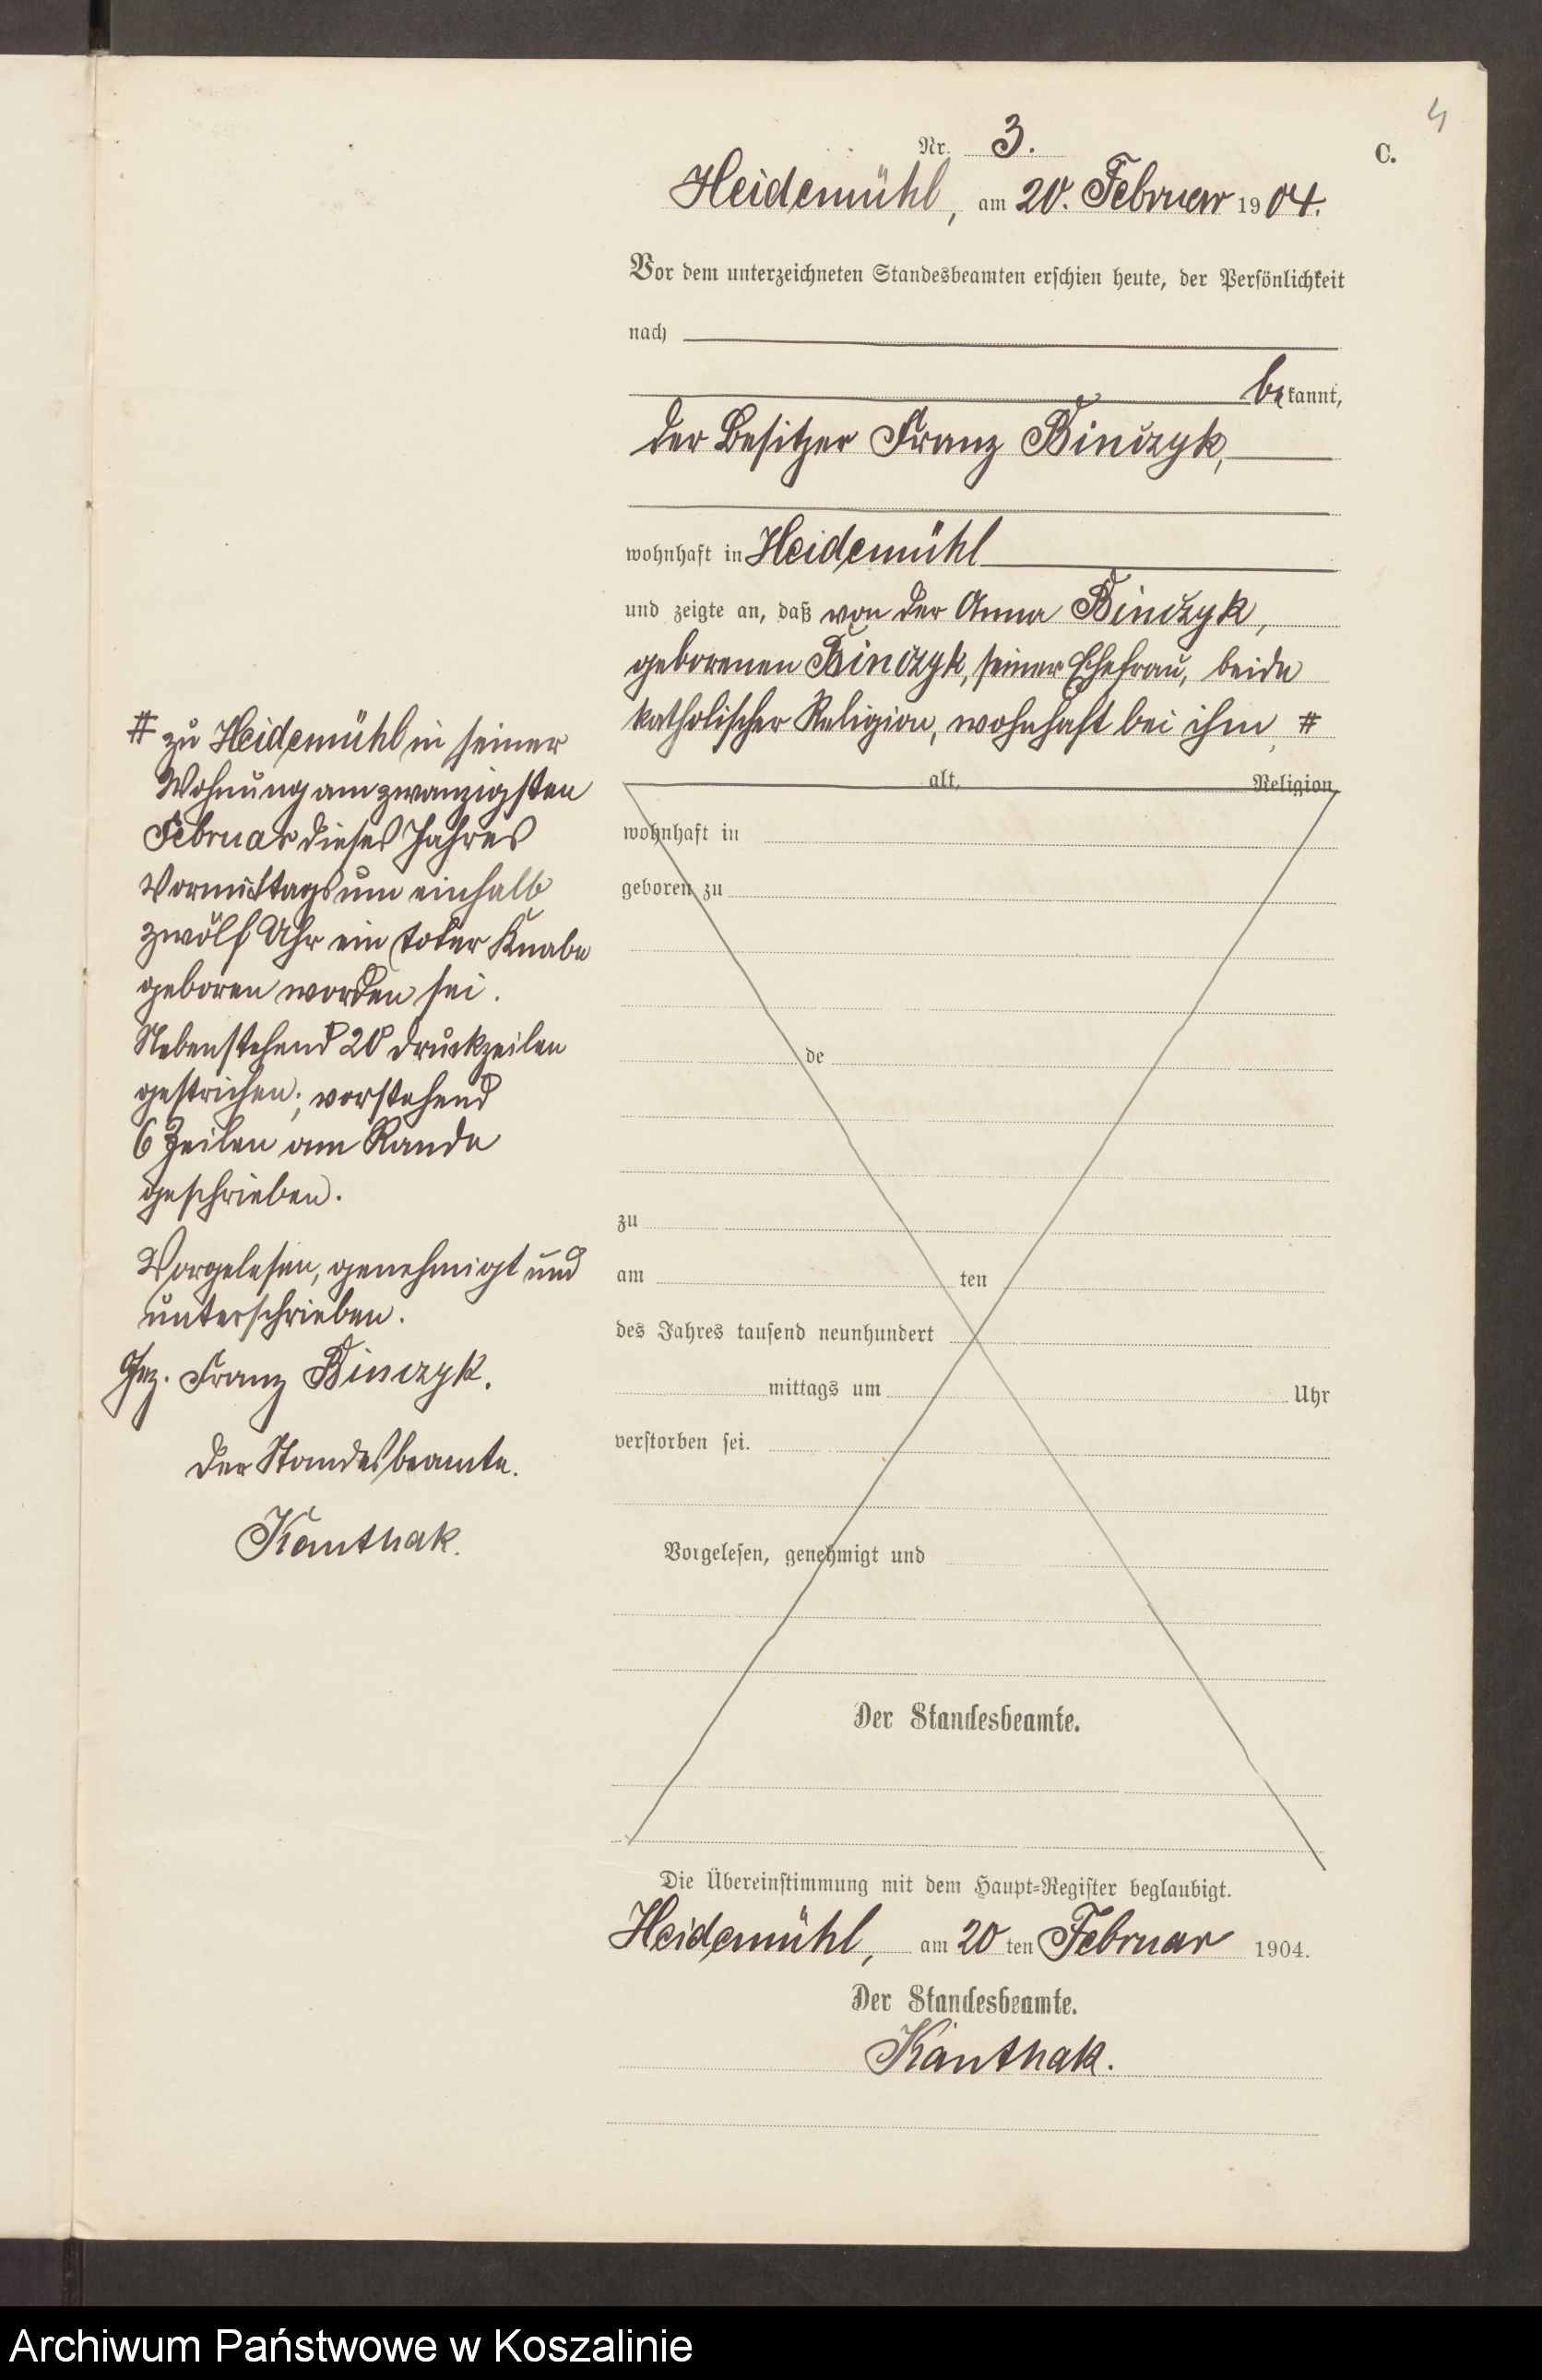 4
C.
Nr. 3.
Heidemühl, am 20. Februar 1904.
Vor dem unterzeichneten Standesbeamten erschien heute, der Persönlichkeit
nach
bekannt,
der Besitzer Franz Binczyk,
wohnhaft in Heidemühl
und zeigte an, daß von der Anna Binczyk,
geborenen Binczyk, seiner Ehefrau, beide
katholischer Religion, wohnhaft bei ihm, #
# zu Heidemühl in seiner
Wohnung am zwanzigsten
Februar dieses Jahres
Vormittags um einhalb
zwölf Uhr ein toter Knabe
geboren worden sei.
Nebenstehend 20 Druckzeilen
gestrichen; vorstehend
6 Zeilen am Rande
geschrieben.
Vorgelesen, genehmigt und
unterschrieben.
Gez. Franz Binczyk.
Der Standesbeamte.
Kanthak.
alt, Religion,
wohnhaft in
geboren zu
de
zu
am ten
des Jahres tausend neunhundert
mittags um Uhr
verstorben sei.
Vorgelesen, genehmigt und
Der Standesbeamte.
Die Übereinstimmung mit dem Haupt-Register beglaubigt.
Heidemühl, am 20 ten Februar 1904.
Der Standesbeamte.
Kanthak.
Archiwum Państwowe w Koszalinie